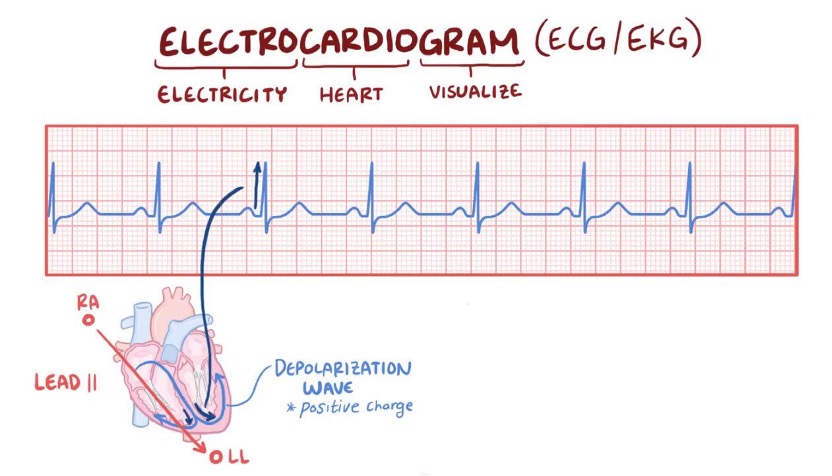 ELECTROCARDIOGRAM (ECG/EKG)
ELECTRICITY HEART VISUALIZE
RA
LEAD II
DEPOLARIZATION
WAVE
* positive charge
LL